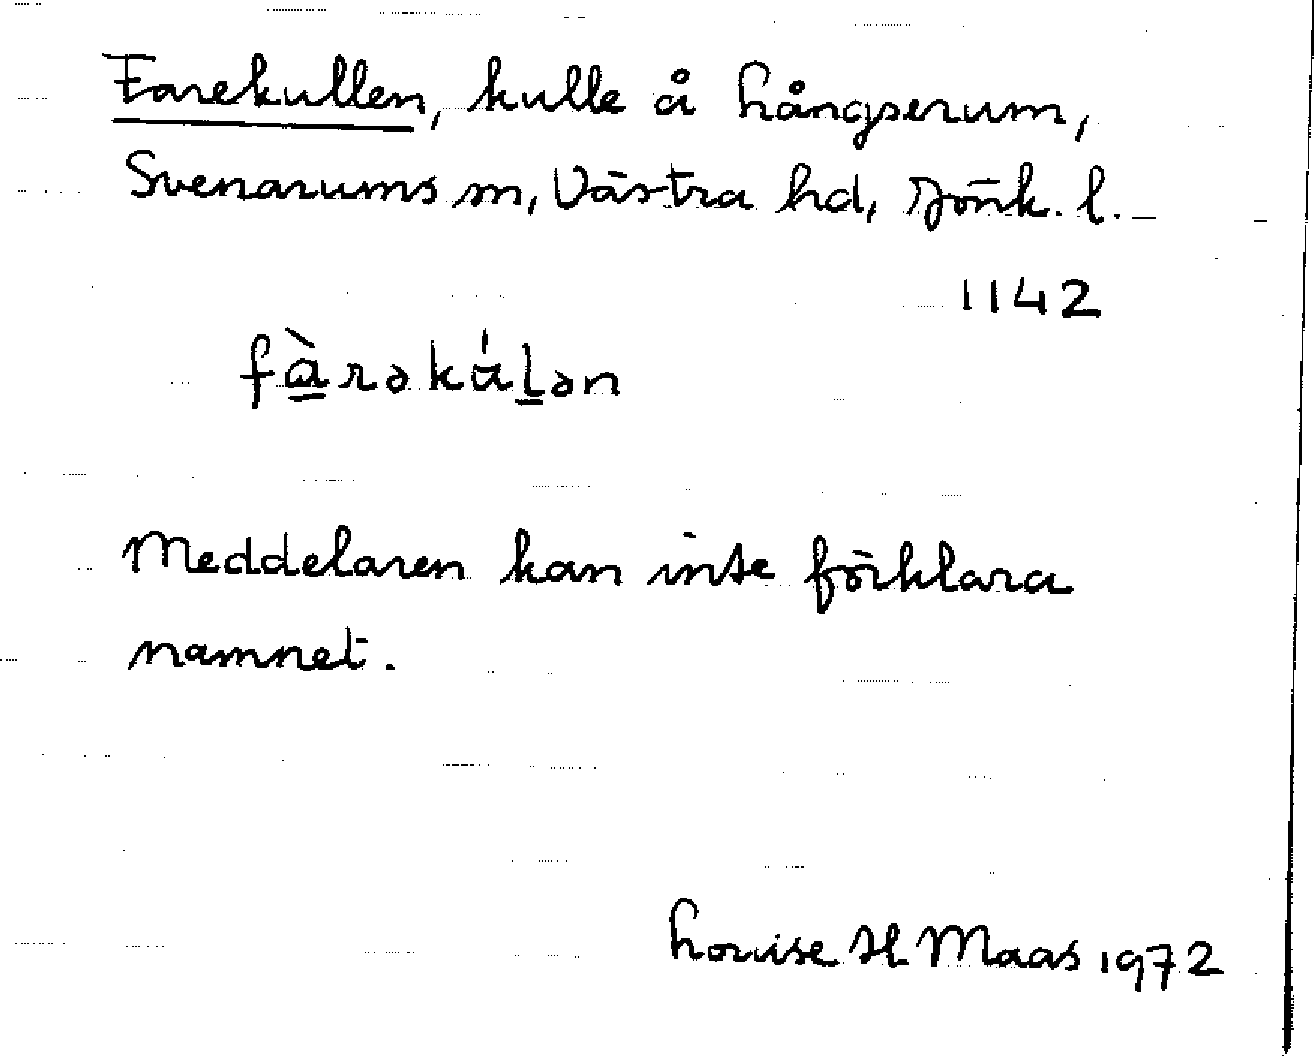 Farekullen, kulle å Långserum,
Svenarums sn, Västra hd, Jönk. l.
1142
fàrəkúlən
Meddelaren kan inte förklara
namnet.
Louise H Maas 1972